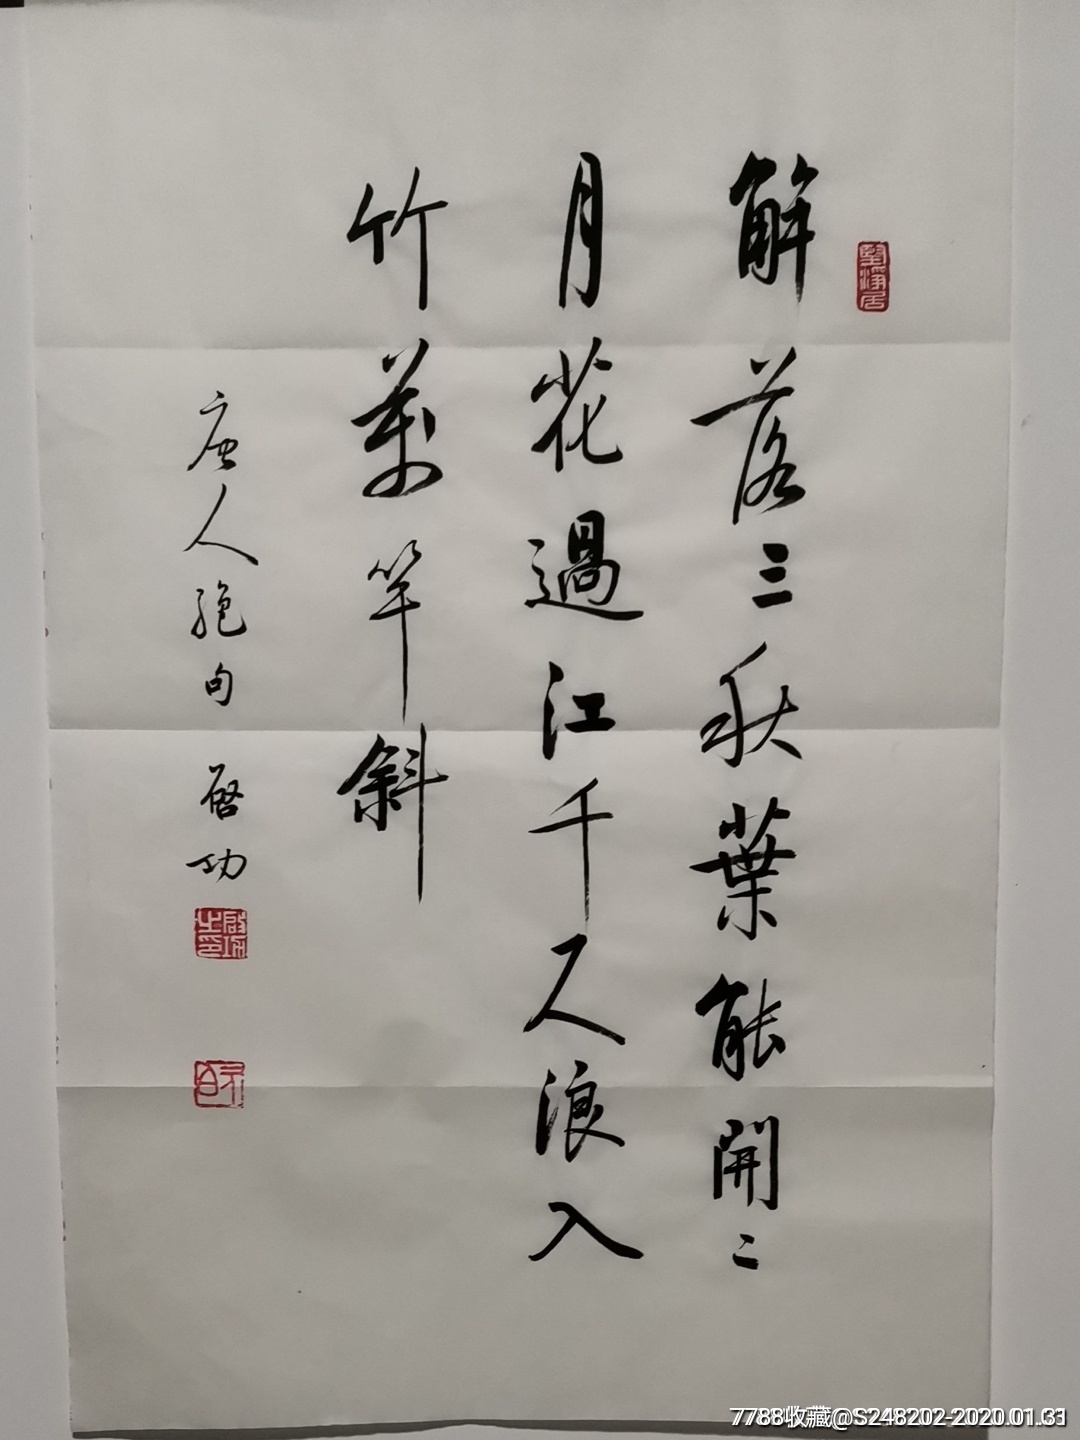 解落三秋葉能開二
月花過江千尺浪入
竹萬竿斜
唐人絕句 啓功
堅淨居
啟功之印
7788收藏@S248202-2020.01.31